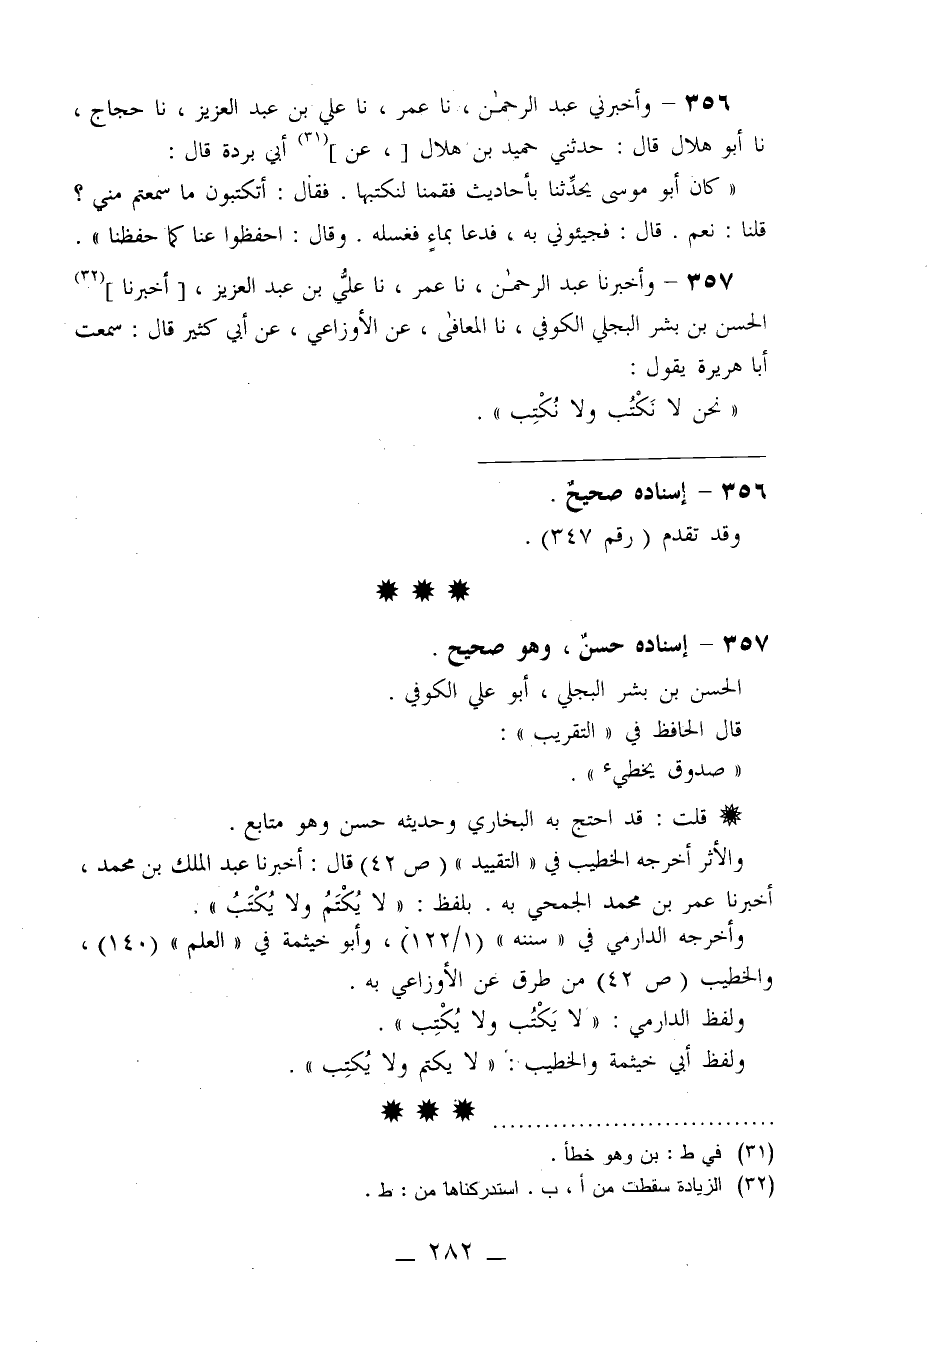 ٣٥٦ – وأخبرني عبد الرحمٰن ، نا عمر ، نا علي بن عبد العزيز ، نا حجاج ،
نا أبو هلال قال : حدثني حميد بن هلال [ ، عن ](٣١) أبي بردة قال :
« كان أبو موسى يحدِّثنا بأحاديث فقمنا لنكتبها . فقال : أتكتبون ما سمعتم مني ؟
قلنا : نعم . قال : فجيئوني به ، فدعا بماءٍ فغسله . وقال : احفظوا عنا كما حفظنا » .
٣٥٧ – وأخبرنا عبد الرحمٰن ، نا عمر ، نا عليُّ بن عبد العزيز ، [ أخبرنا ](٣٢)
الحسن بن بشر البجلي الكوفي ، نا المعافىٰ ، عن الأوزاعي ، عن أبي كثير قال : سمعت
أبا هريرة يقول :
« نحن لا نَكْتُب ولا نُكْتِب » .
٣٥٦ – إسناده صحيحٌ .
وقد تقدم ( رقم ٣٤٧) .
٣٥٧ – إسناده حسنٌ ، وهو صحيح .
الحسن بن بشر البجلي ، أبو علي الكوفي .
قال الحافظ في « التقريب » :
« صدوق يخطيء » .
قلت : قد احتج به البخاري وحديثه حسن وهو متابع .
والأثر أخرجه الخطيب في « التقييد » ( ص ٤٢) قال : أخبرنا عبد الملك بن محمد ،
أخبرنا عمر بن محمد الجمحي به . بلفظ : « لا يُكْتَمُ ولا يُكْتَبُ » .
وأخرجه الدارمي في « سننه » (١٢٢/١) ، وأبو خيثمة في « العلم » (١٤٠) ،
والخطيب ( ص ٤٢) من طرق عن الأوزاعي به .
ولفظ الدارمي : « لا يَكْتُب ولا يُكْتِب » .
ولفظ أبي خيثمة والخطيب : « لا يكتم ولا يُكتِب » .
(٣١) في ط : بن وهو خطأ .
(٣٢) الزيادة سقطت من أ ، ب . استدركناها من : ط .
ــ ٢٨٢ ــ